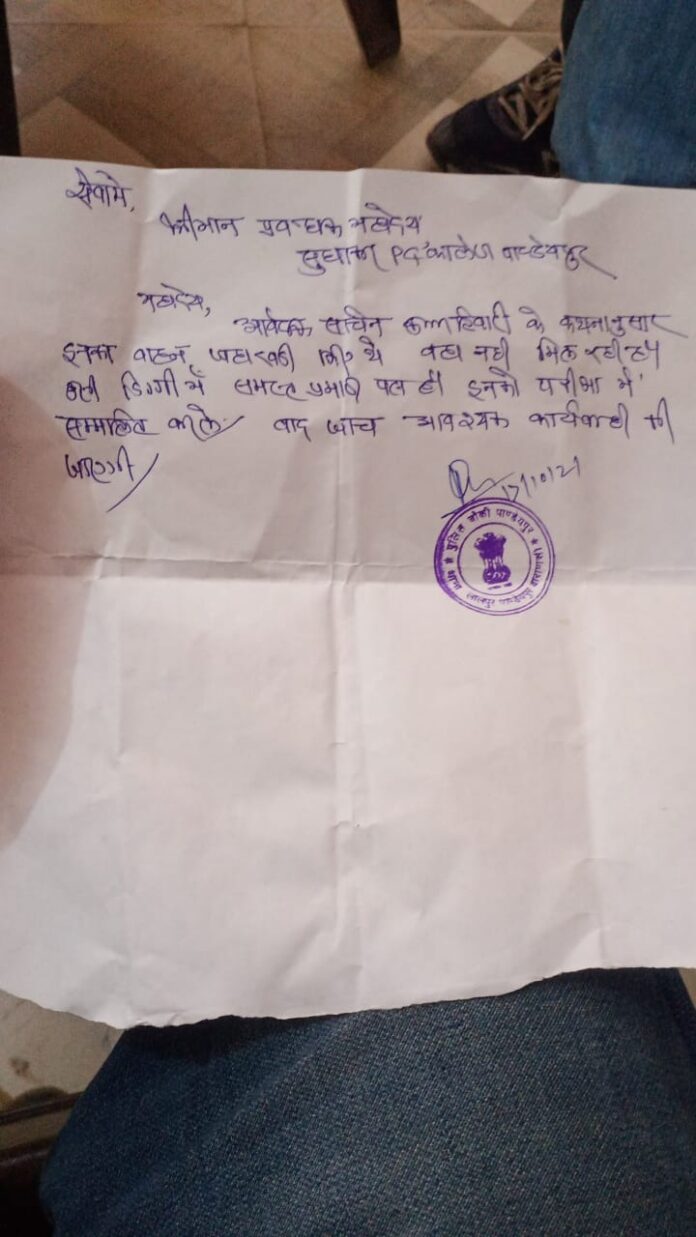 सेवामे,
श्रीमान प्रबन्धक महोदय
सुधाकर PG कालेज पाण्डेयपुर
महोदय,
आवेदक सचिन के कथनानुसार
इनका वाहन जहा खडी किए थे वहा नही मिल रही है।
उसी डिग्गी में समस्त प्रमाण पत्र है। इनको परीक्षा में
सम्मलित करले। बाद जांच आवश्यक कार्यवाही की
जाएगी
17/10/21
पुलिस चौकी पाण्डेयपुर
लालपुर पाण्डेयपुर